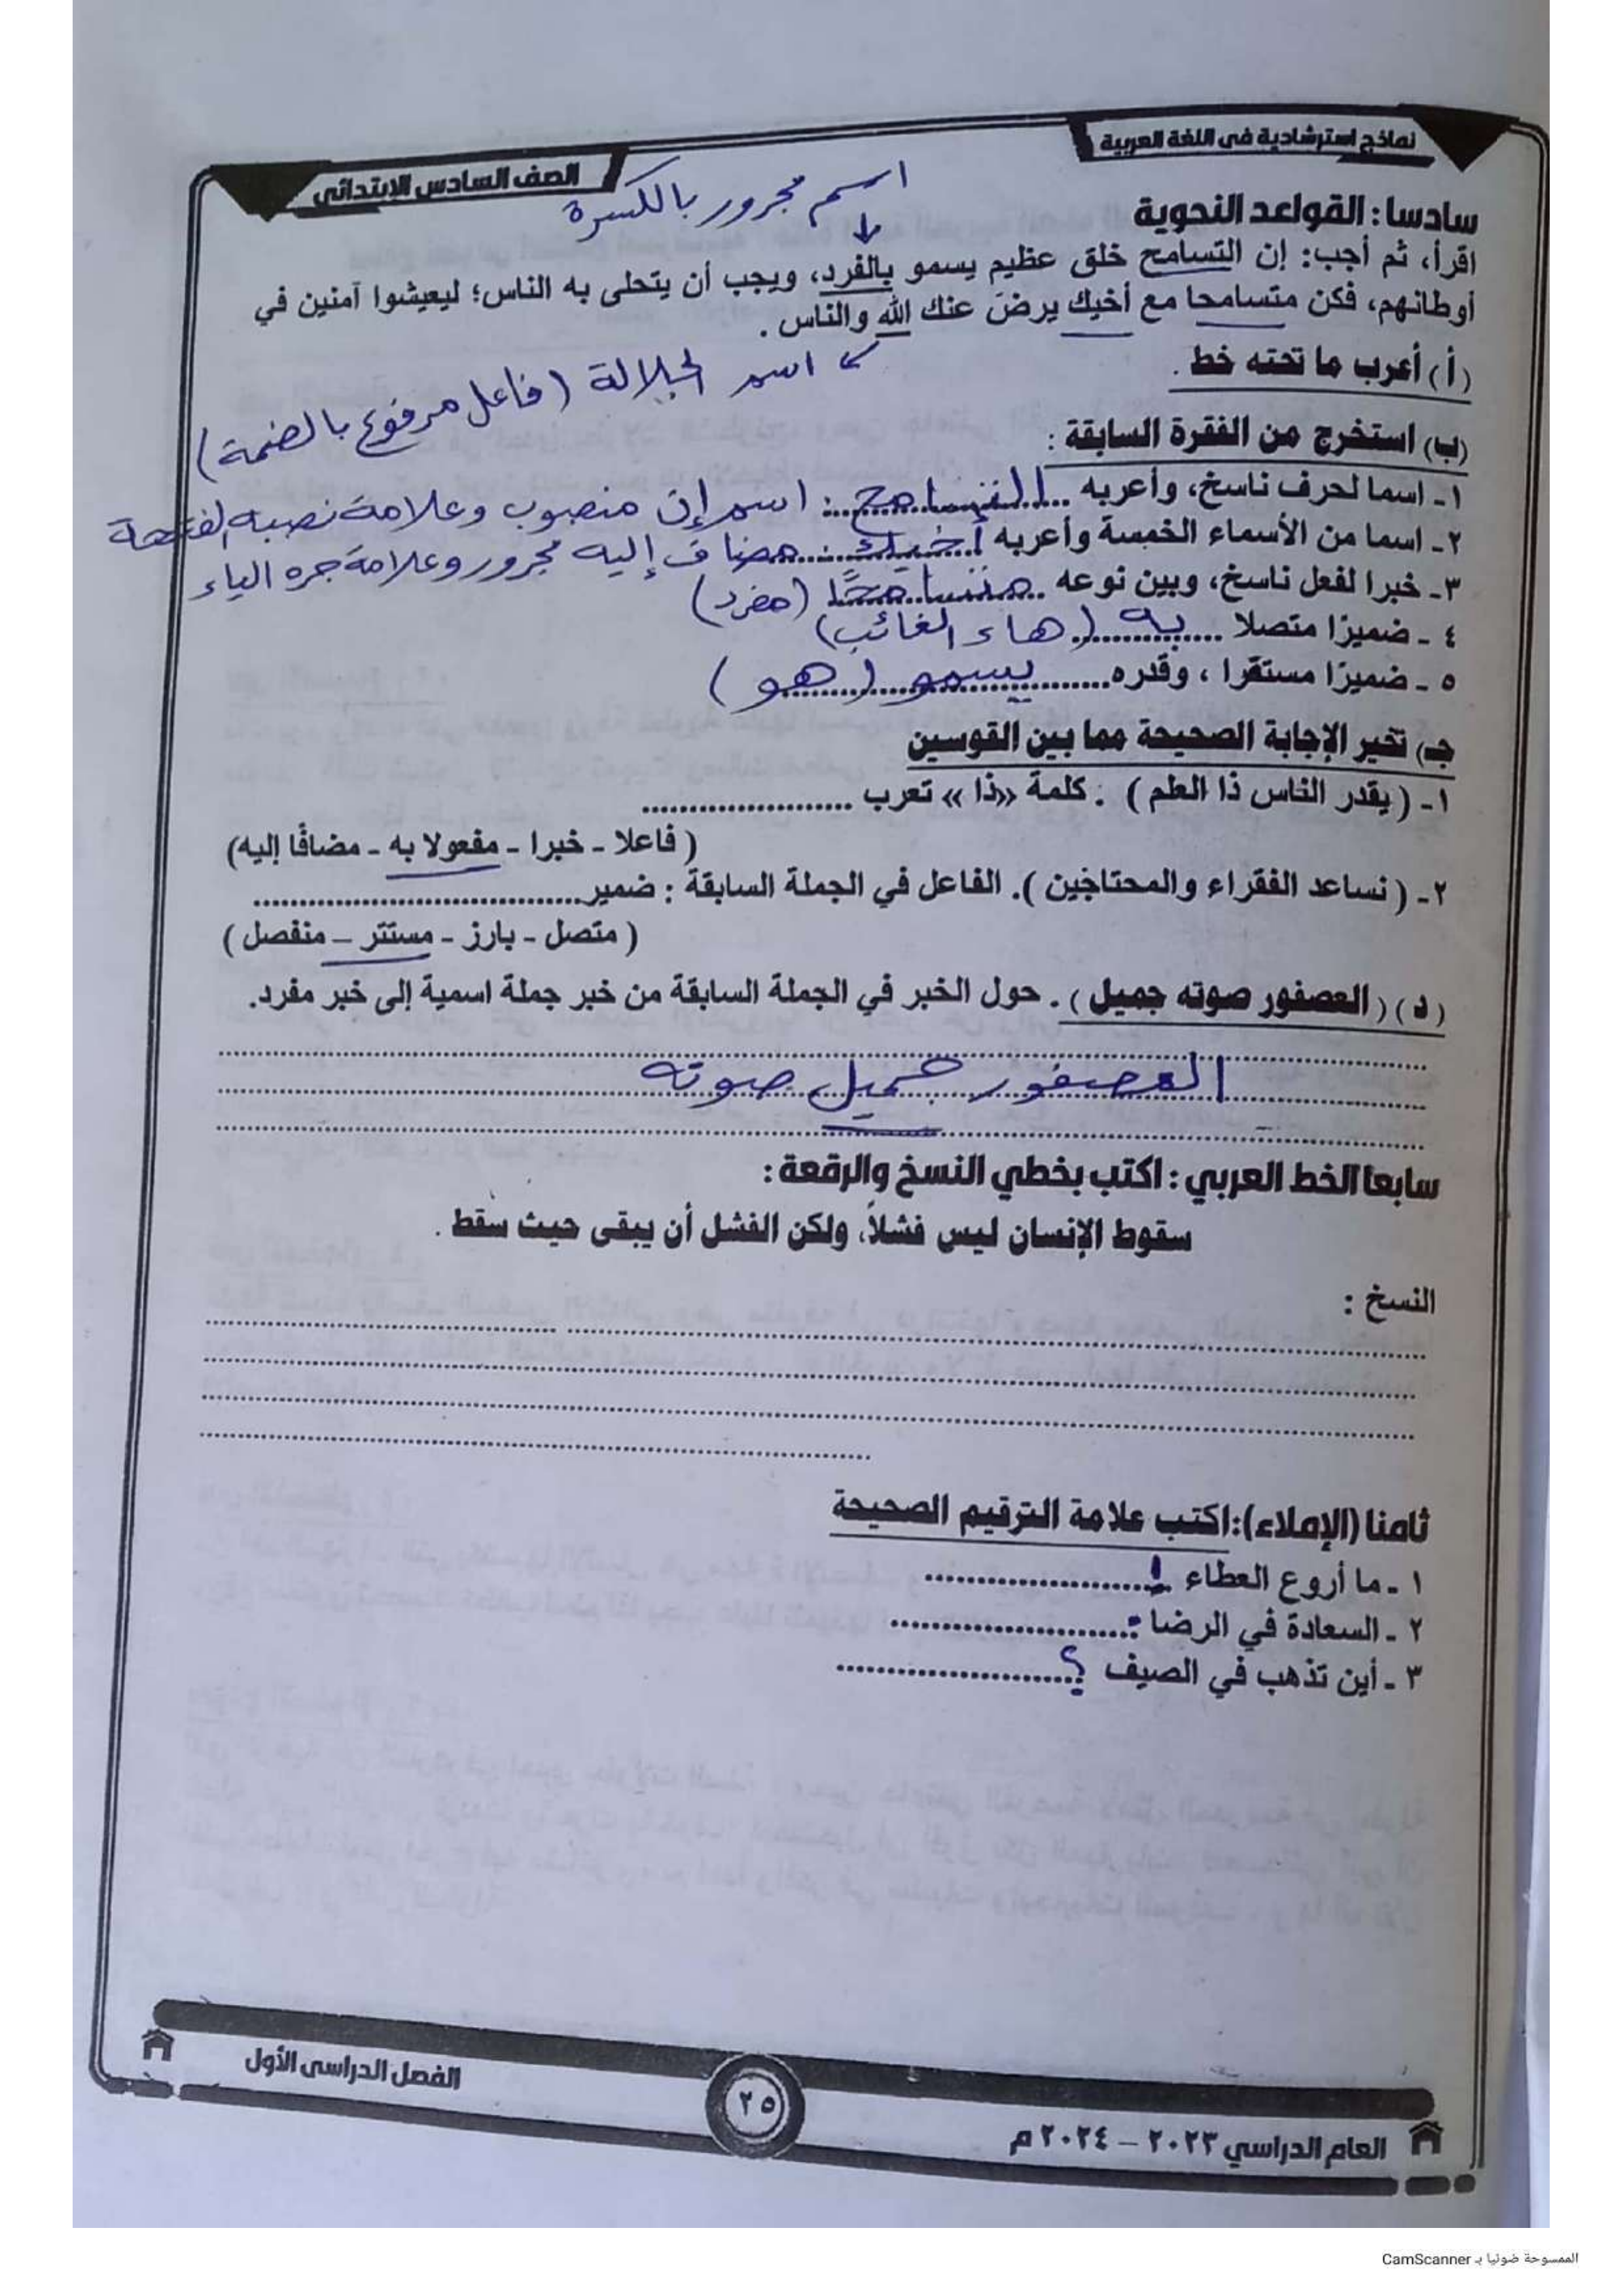 نماذج استرشادية في اللغة العربية
الصف السادس الابتدائي
سادسا: القواعد النحوية
اسم مجرور بالكسرة
اقرأ، ثم أجب: إن التسامح خلق عظيم يسمو بالفرد، ويجب أن يتحلى به الناس؛ ليعيشوا آمنين في
أوطانهم، فكن متسامحا مع أخيك يرضَ عنك الله والناس .
(أ) أعرب ما تحته خط .
اسم الجلالة (فاعل مرفوع بالضمة)
(ب) استخرج من الفقرة السابقة :
١- اسما لحرف ناسخ، وأعربه .. التسامح : اسم إن منصوب وعلامة نصبه الفتحة
٢- اسما من الأسماء الخمسة وأعربه أخيك : مضاف إليه مجرور وعلامة جره الياء
٣- خبرا لفعل ناسخ، وبين نوعه .. متسامحًا (مفرد)
٤ - ضميرًا متصلا ...... به (هاء الغائب)
٥ - ضميرًا مستقرا ، وقدره ........ يسمو (هو)
جـ) تخير الإجابة الصحيحة مما بين القوسين
١- ( يقدر الناس ذا العلم ) . كلمة «ذا» تعرب ......................
( فاعلا - خبرا - مفعولا به - مضافًا إليه)
٢- ( نساعد الفقراء والمحتاجين ). الفاعل في الجملة السابقة : ضمير..................................
( متصل - بارز - مستتر – منفصل )
(د) ( العصفور صوته جميل ) . حول الخبر في الجملة السابقة من خبر جملة اسمية إلى خبر مفرد.
العصفور جميل صوته
سابعا الخط العربي : اكتب بخطي النسخ والرقعة :
سقوط الإنسان ليس فشلاً، ولكن الفشل أن يبقى حيث سقط .
النسخ :
ثامنا (الإملاء):اكتب علامة الترقيم الصحيحة
١ - ما أروع العطاء !......................
٢ - السعادة في الرضا .........................
٣ - أين تذهب في الصيف ؟.......................
الفصل الدراسي الأول
٢٥
العام الدراسي ٢٠٢٣ – ٢٠٢٤ م
الممسوحة ضوئيا بـ CamScanner